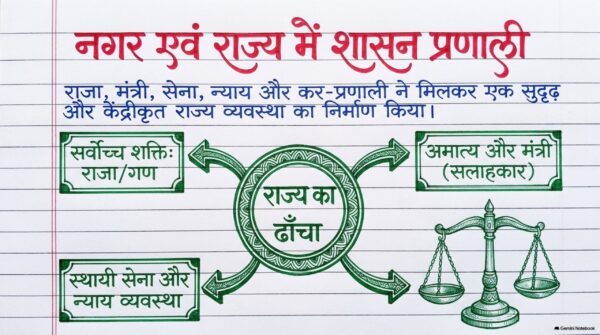 नगर एवं राज्य में शासन प्रणाली
राजा, मंत्री, सेना, न्याय और कर-प्रणाली ने मिलकर एक सुदृढ़
और केंद्रीकृत राज्य व्यवस्था का निर्माण किया।
सर्वोच्च शक्तिः
राजा/गण
अमात्य और मंत्री
(सलाहकार)
राज्य का
ढाँचा
स्थायी सेना और
न्याय व्यवस्था
Gemini Notebook